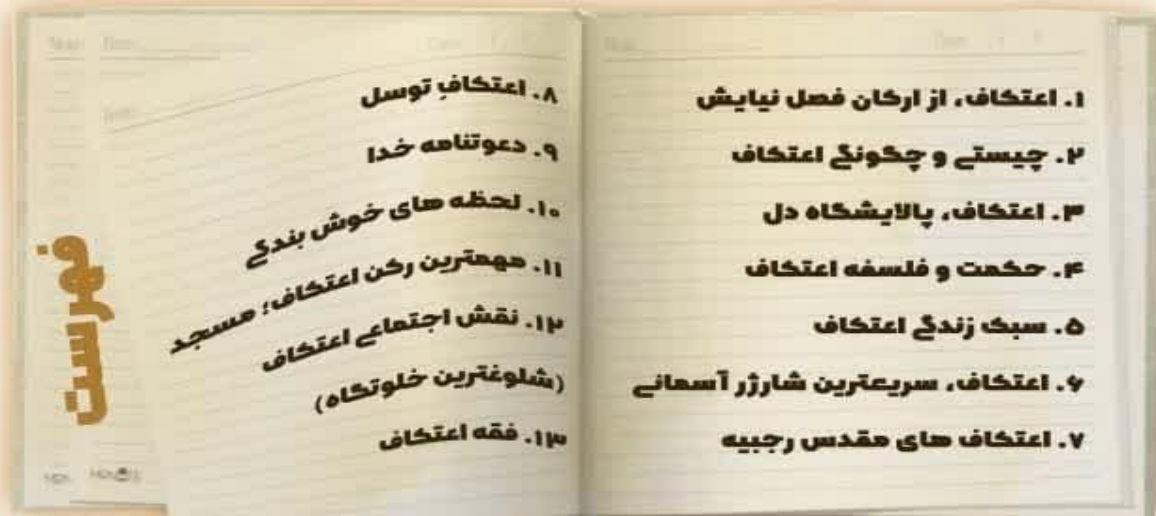 فهرست
۱. اعتکاف، از ارکان فصل نیایش
۲. چیستی و چگونگی اعتکاف
۳. اعتکاف، پالایشگاه دل
۴. حکمت و فلسفه اعتکاف
۵. سبک زندگی اعتکاف
۶. اعتکاف، سریعترین شارژر آسمانی
۷. اعتکاف های مقدس رجبیه
۸. اعتکافِ توسل
۹. دعوتنامه خدا
۱۰. لحظه های خوش بندگی
۱۱. مهمترین رکن اعتکاف؛ مسجد
۱۲. نقش اجتماعی اعتکاف
(شلوغترین خلوتگاه)
۱۳. فقه اعتکاف